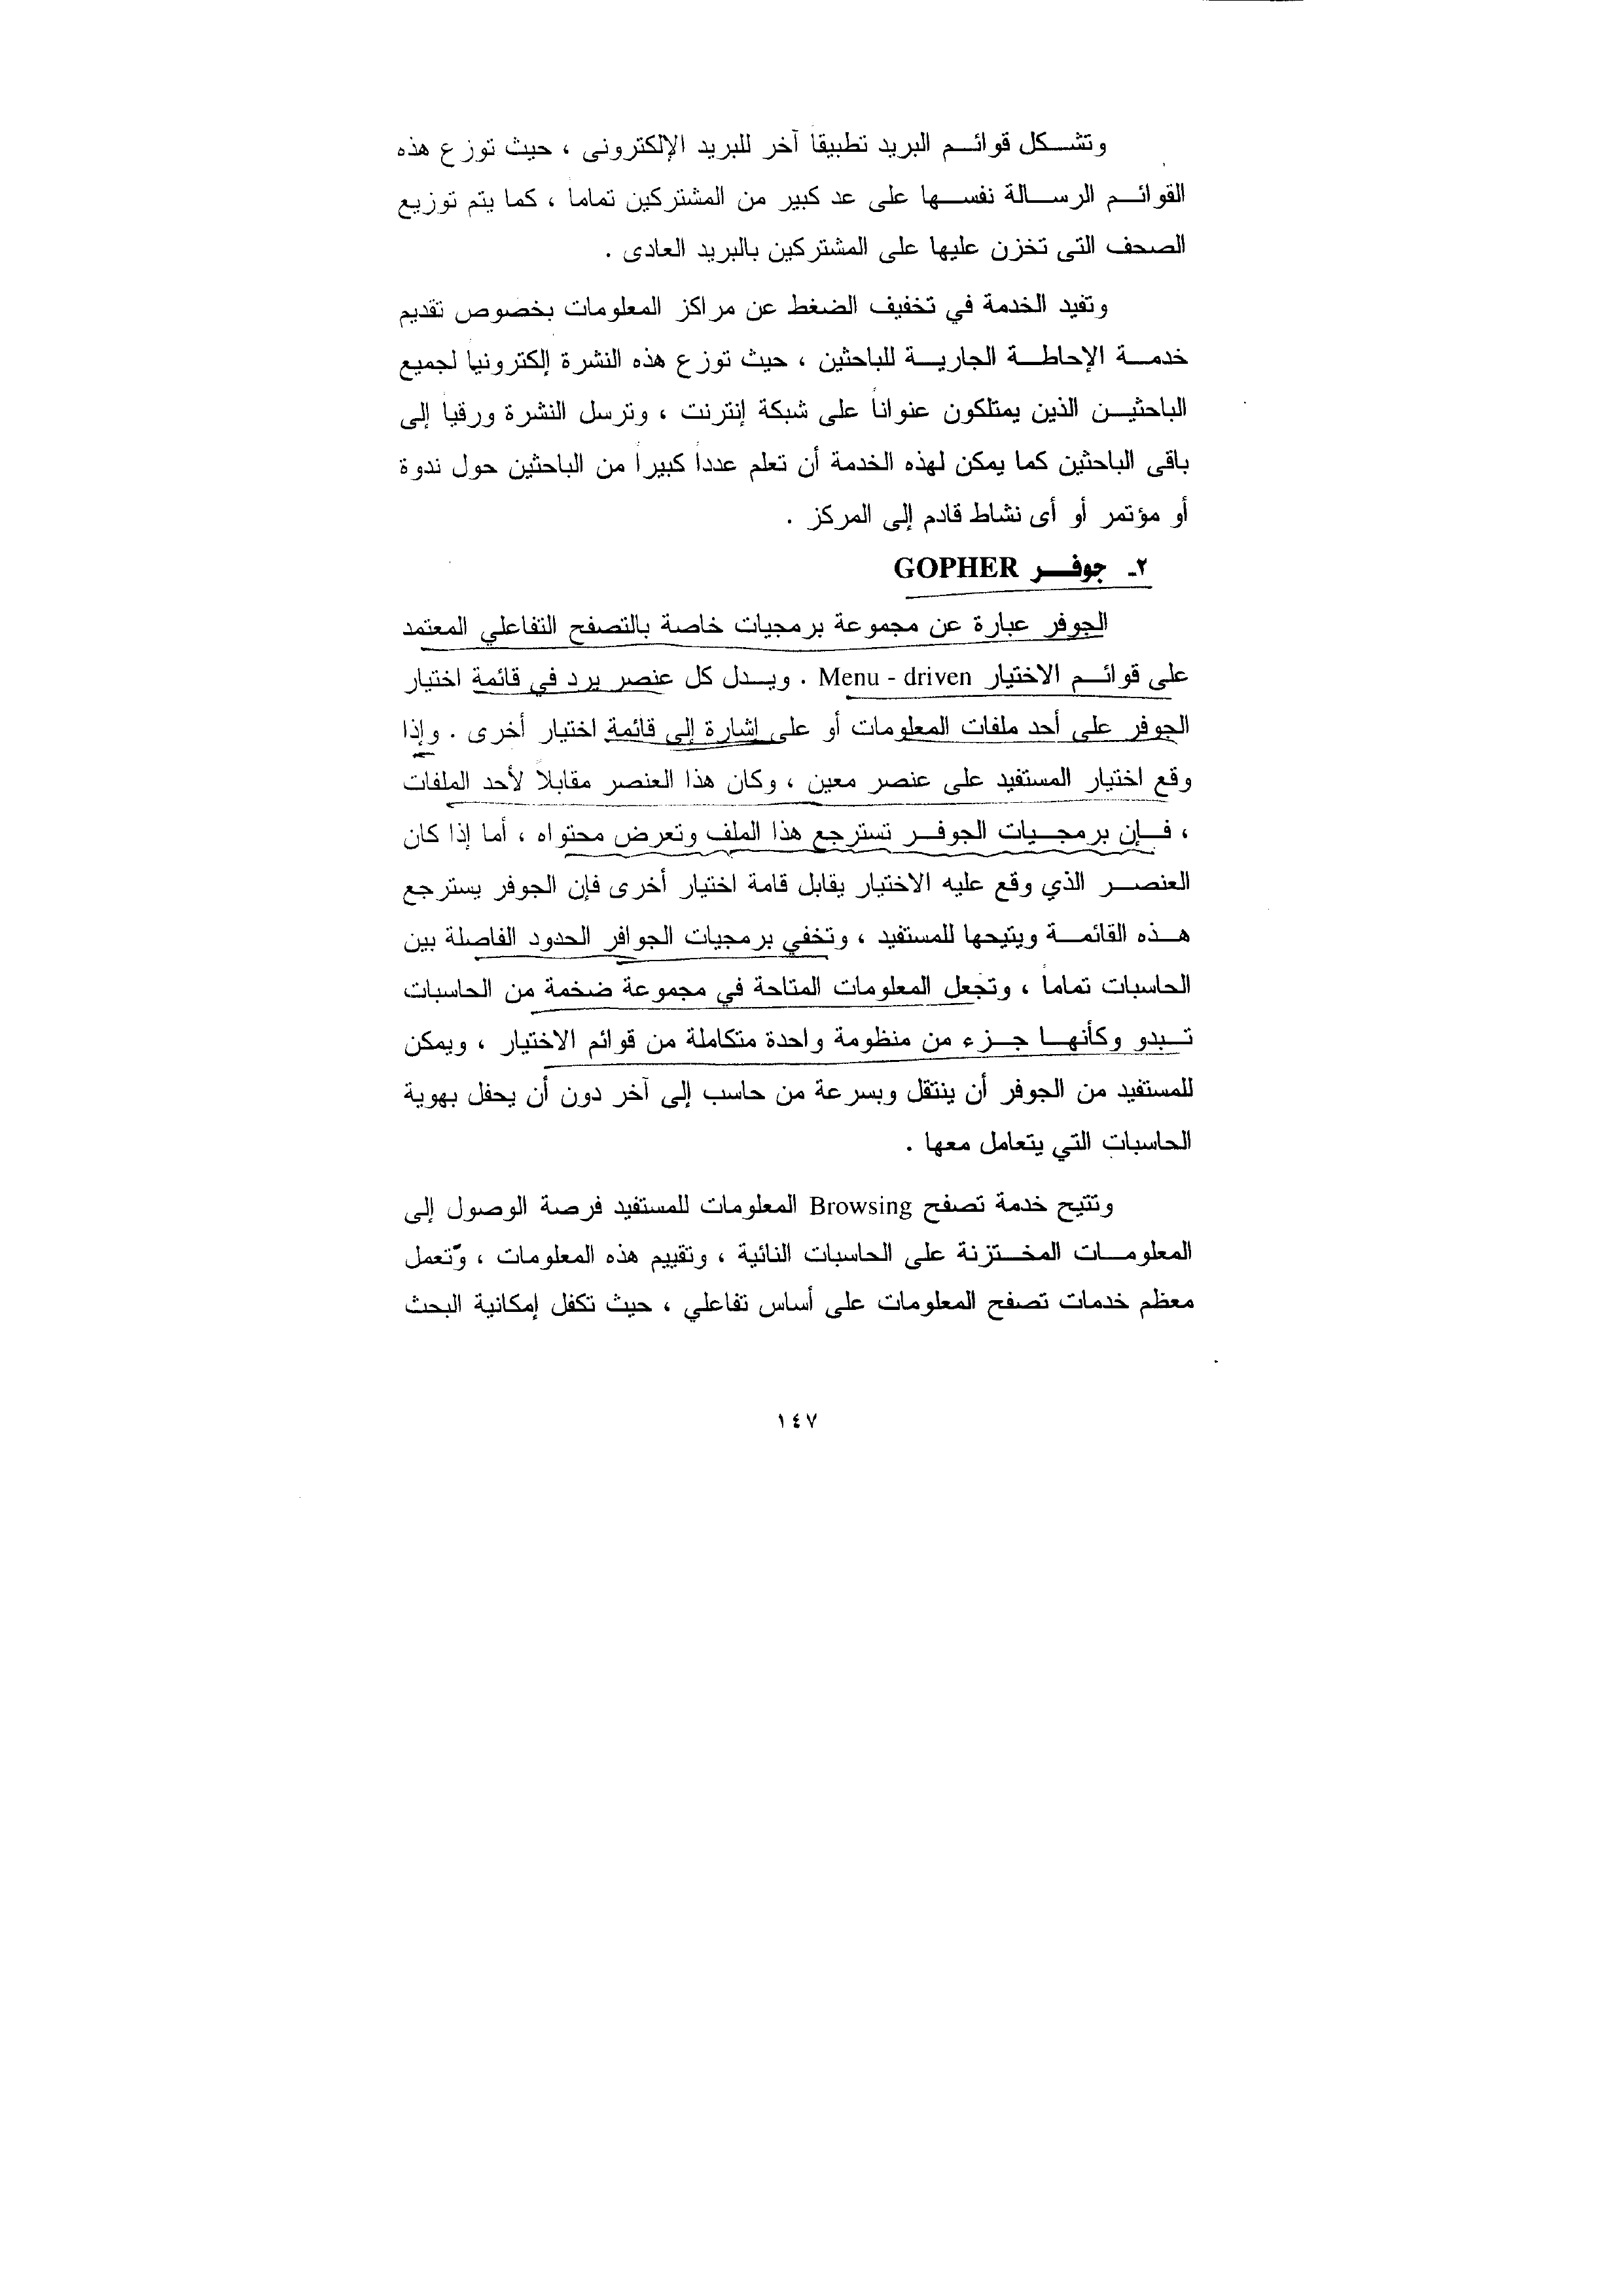 وتشكل قوائم البريد تطبيقاً آخر للبريد الإلكترونى ، حيث توزع هذه
القوائم الرسالة نفسها على عد كبير من المشتركين تماماً ، كما يتم توزيع
الصحف التى تخزن عليها على المشتركين بالبريد العادى .
وتفيد الخدمة في تخفيف الضغط عن مراكز المعلومات بخصوص تقديم
خدمة الإحاطة الجارية للباحثين ، حيث توزع هذه النشرة إلكترونياً لجميع
الباحثين الذين يمتلكون عنواناً على شبكة إنترنت ، وترسل النشرة ورقياً إلى
باقى الباحثين كما يمكن لهذه الخدمة أن تعلم عدداً كبيراً من الباحثين حول ندوة
أو مؤتمر أو أى نشاط قادم إلى المركز .
٢ـ جوفر GOPHER
الجوفر عبارة عن مجموعة برمجيات خاصة بالتصفح التفاعلي المعتمد
على قوائم الاختيار Menu - driven . ويدل كل عنصر يرد في قائمة اختيار
الجوفر على أحد ملفات المعلومات أو على إشارة إلى قائمة اختيار أخرى . وإذا
وقع اختيار المستفيد على عنصر معين ، وكان هذا العنصر مقابلاً لأحد الملفات
، فإن برمجيات الجوفر تسترجع هذا الملف وتعرض محتواه ، أما إذا كان
العنصر الذي وقع عليه الاختيار يقابل قامة اختيار أخرى فإن الجوفر يسترجع
هذه القائمة ويتيحها للمستفيد ، وتخفي برمجيات الجوافر الحدود الفاصلة بين
الحاسبات تماماً ، وتجعل المعلومات المتاحة في مجموعة ضخمة من الحاسبات
تبدو وكأنها جزء من منظومة واحدة متكاملة من قوائم الاختيار ، ويمكن
للمستفيد من الجوفر أن ينتقل وبسرعة من حاسب إلى آخر دون أن يحفل بهوية
الحاسبات التي يتعامل معها .
وتتيح خدمة تصفح Browsing المعلومات للمستفيد فرصة الوصول إلى
المعلومات المختزنة على الحاسبات النائية ، وتقييم هذه المعلومات ، وتعمل
معظم خدمات تصفح المعلومات على أساس تفاعلي ، حيث تكفل إمكانية البحث
١٤٧